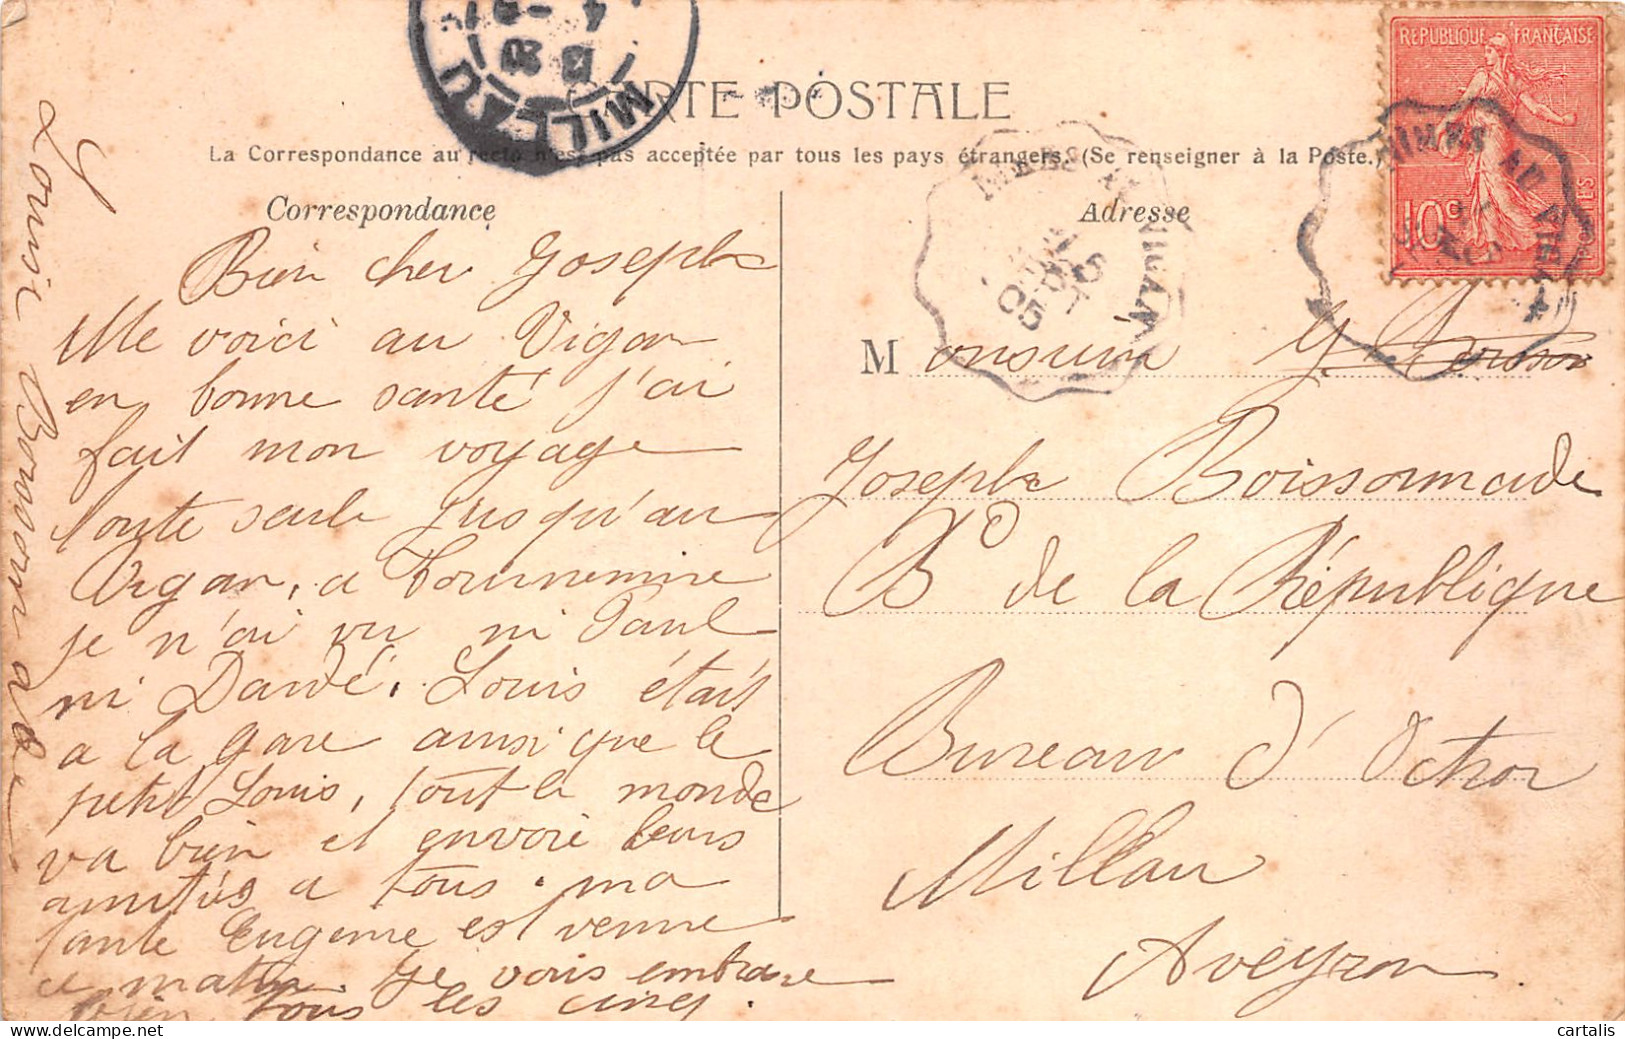 CARTE POSTALE
La Correspondance au recto n'est pas acceptée par tous les pays étrangers. (Se renseigner à la Poste.)
Correspondance
Bien cher Joseph
Me voici au Vigan
en bonne santé j'ai
fait mon voyage
toute seule jusqu'au
Vigan, a Tournemire
je n'ai vu ni Paul
ni Dardé. Louis était
a la gare ainsi que le
petit Louis, tout le monde
va bien et envoie leurs
amitiés a tous. ma
tante Eugenie est venue
ce matin. Je vous embrasse
bien tous les cinq.
Adresse
Monsieur
Joseph Boissonnade
Bd de la République
Bureau d'Octroi
Millau
Aveyron
REPUBLIQUE FRANÇAISE
10c
POSTES
NIMES AU VIGAN
NIMES AU VIGAN
05
MILLAU
cartalis